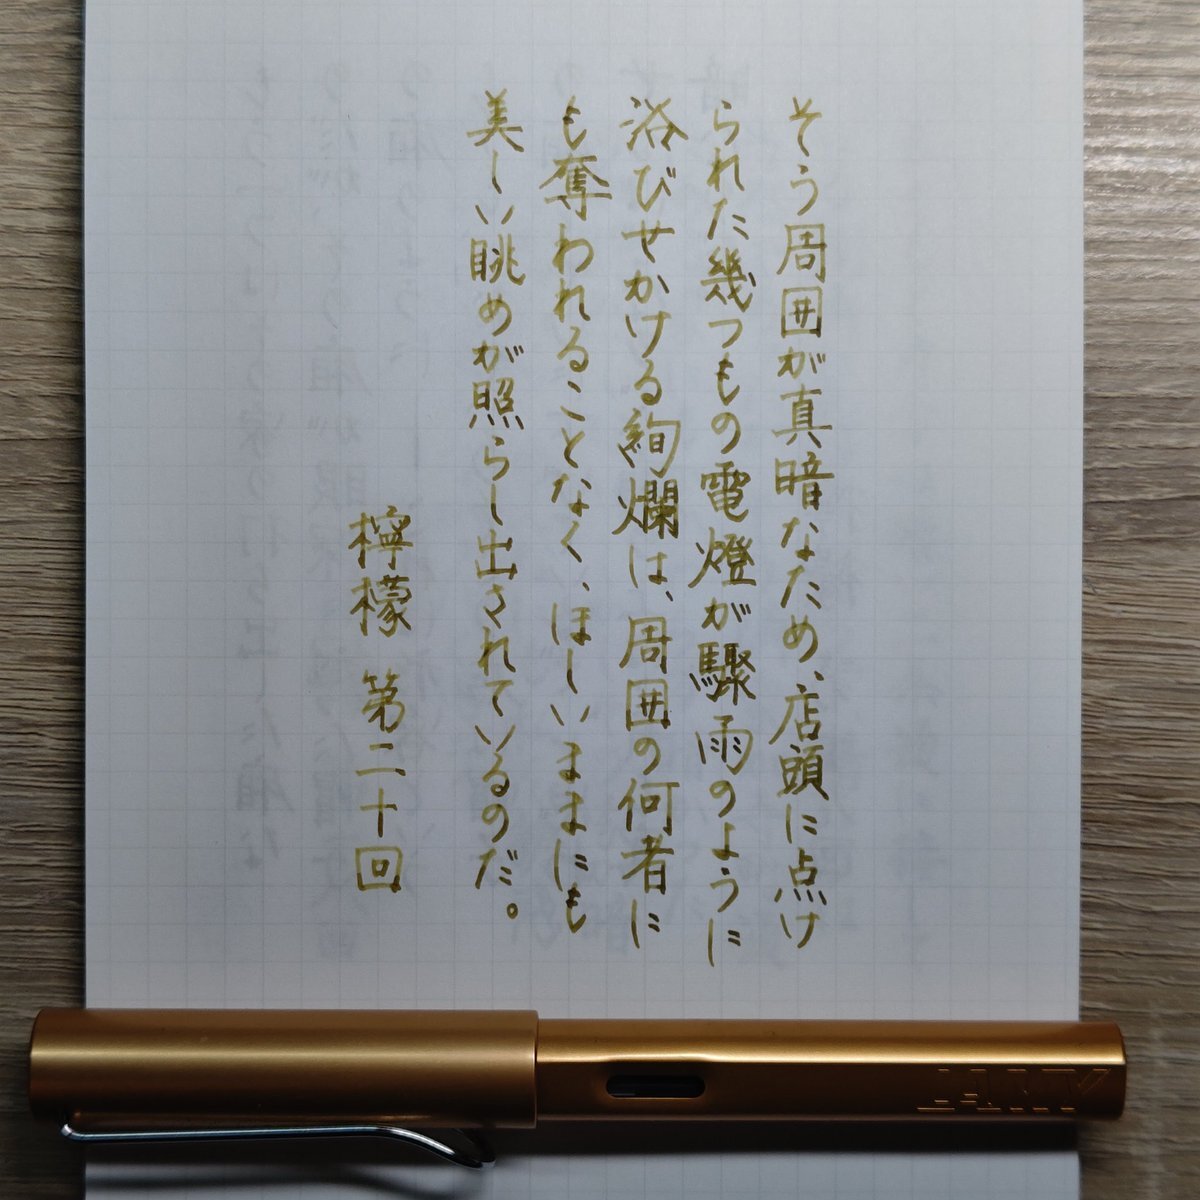 そう周囲が真暗なため、店頭に点け
られた幾つもの電燈が驟雨のように
浴びせかける絢爛は、周囲の何者に
も奪われることなく、ほしいままにも
美しい眺めが照らし出されているのだ。
檸檬 第二十回
LAMY